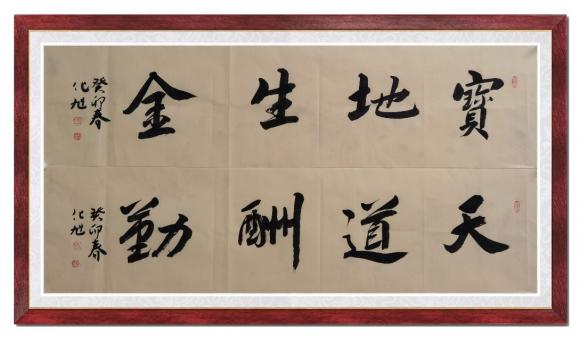 寶地生金
癸卯春
化旭
天道酬勤
癸卯春
化旭